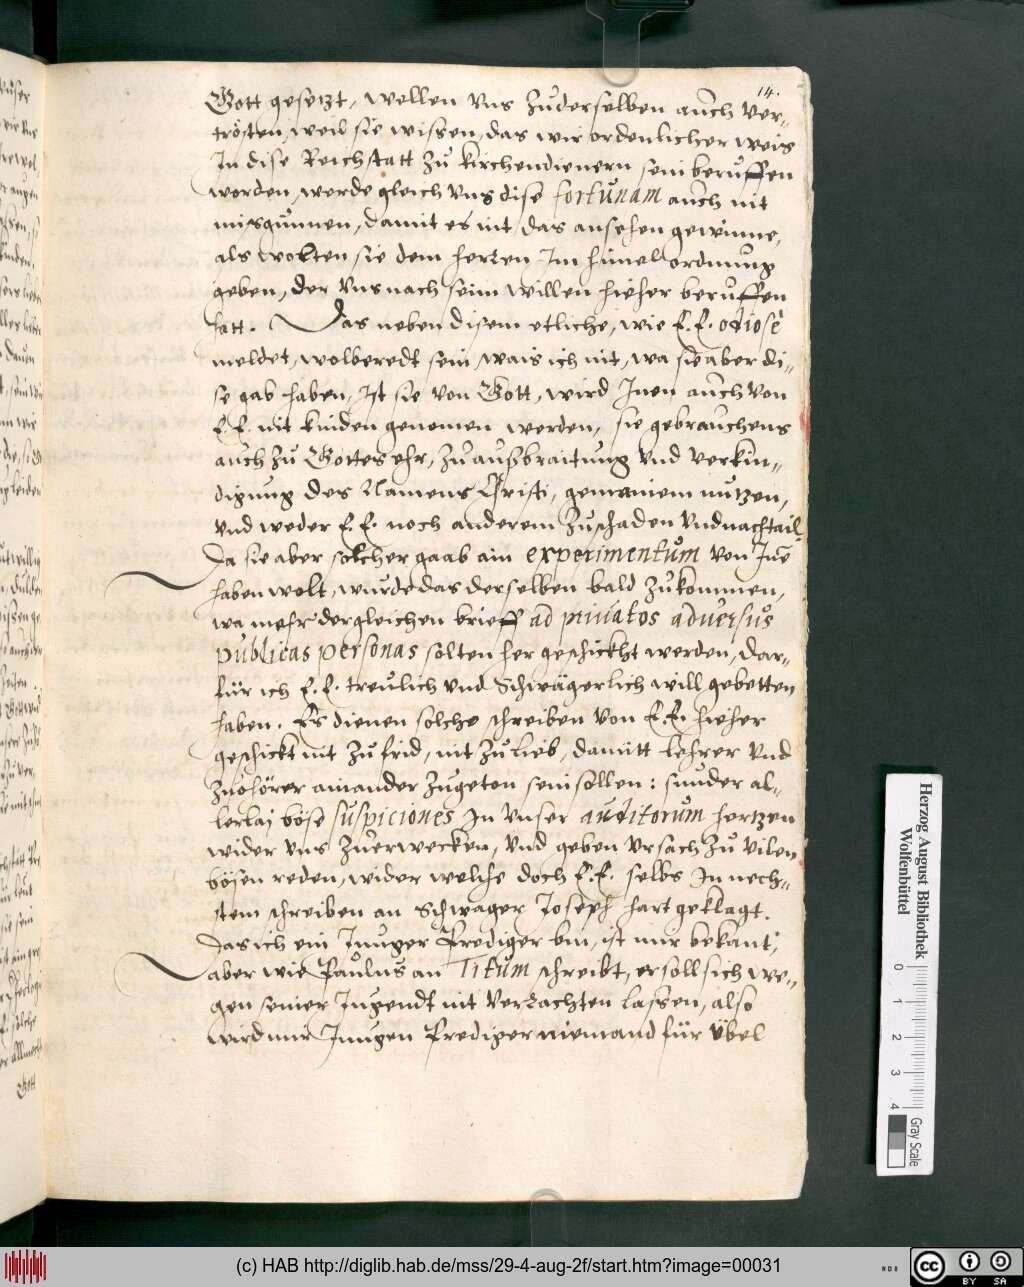 14.
Gott gesetzt, wellen vns zuderselben auch ver-
trösten, weil sie wissen, das wir ordenlicher weis
In dise Reichstatt zu kirchendienern sein beruffen
worden, werde gleich vns dise fortunam auch nit
misgunnen, damit es nit das ansehen gewinne,
als wolten sie dem herren Im himel ordnung
geben, der vns nach seim willen hieher beruffen
hatt. Das neben disem etliche, wie E. E. odiosè
meldet, wolberedt sein, wais ich nit, wa sie aber di-
se gab haben, Ist sie von Gott, wird Inen auch von
E. E. nit kinden genomen werden, sie gebrauchens
auch zu Gottes ehr, zu außbraitung vnd verkin-
digung des Namens Christi, gemainem nutzen,
vnd weder E. E. noch anderem zuschaden vnd nachtail,
Da sie aber solcher gaab ain experimentum von Inē
haben wolt, wurde das derselben bald zukommen,
wa mehr dergleichen brieff ad priuatos aduersus
publicas personas solten her geschickht werden, dar-
für ich E. E. treulich vnd Schwägerlich will gebetten
haben. Es dienen solche schreiben von E. E. hieher
geschickt nit zu frid, nit zu lieb, damitt lehrer vnd
zuohörer ainander zugeton sein sollen: sunder al-
lerlaj böse suspiciones In vnser auditorum hertzen
wider vns zuerwecken, vnd geben vrsach zu vilen
bösen reden, wider welche doch E. E. selbs In nech-
stem schreiben an Schwager Joseph hart geklagt.
Das ich ein Junger Prediger bin, ist mir bekant,
aber wie Paulus an Titum schreibt, er soll sich we-
gen seiner Jugendt nit verachten lassen, also
wird mir Jungen Prediger niemand für übel
Gott
Herzog August Bibliothek
Wolfenbüttel
0 1 2 3 4
Gray Scale
(c) HAB http://diglib.hab.de/mss/29-4-aug-2f/start.htm?image=00031
cc BY SA